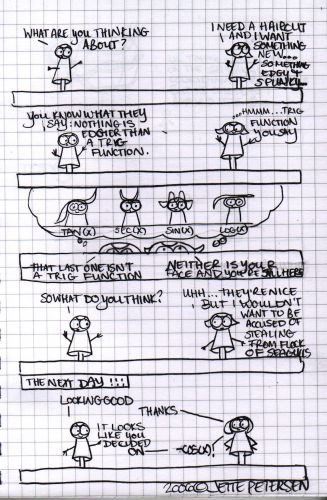 WHAT ARE YOU THINKING
ABOUT?
I NEED A HAIRCUT
AND I WANT
SOMETHING
NEW...
SOMETHING
EDGY &
SPUNKY...
YOU KNOW WHAT THEY
SAY: NOTHING IS
EDGIER THAN
A TRIG
FUNCTION.
...HMMM...TRIG
FUNCTION
YOU SAY
TAN(X)
SEC(X)
SIN(X)
LOG(X)
THAT LAST ONE ISN'T
A TRIG FUNCTION
NEITHER IS YOUR
FACE AND YOU'RE STILL HERE
SO WHAT DO YOU THINK?
UHH... THEY'RE NICE
BUT I WOULDN'T
WANT TO BE
ACCUSED OF
STEALING
FROM FLOCK
OF SEAGULLS
THE NEXT DAY!!!!
LOOKING GOOD
THANKS
IT LOOKS
LIKE YOU
DECIDED
ON
-COS(X)!
2006©JETTE PETERSEN